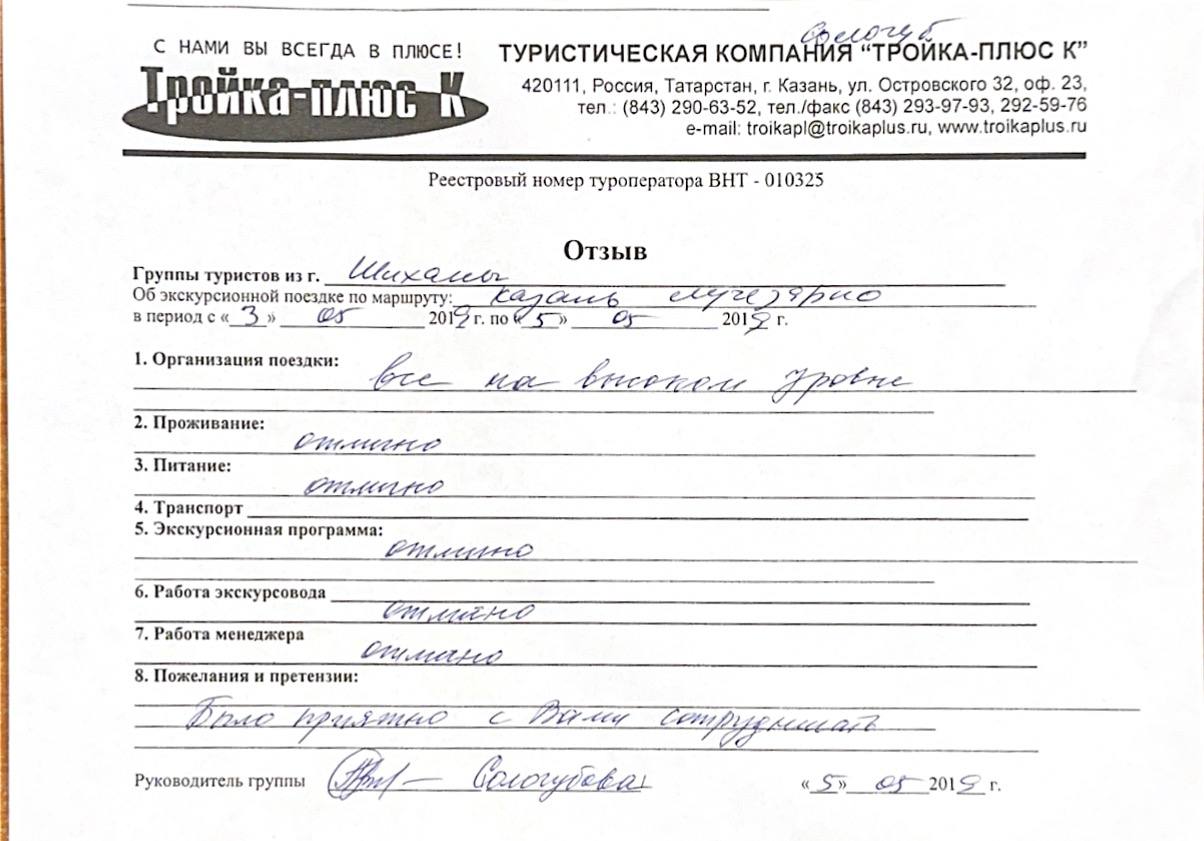 Сологуб
С НАМИ ВЫ ВСЕГДА В ПЛЮСЕ!
Тройка-плюс К
ТУРИСТИЧЕСКАЯ КОМПАНИЯ “ТРОЙКА-ПЛЮС К”
420111, Россия, Татарстан, г. Казань, ул. Островского 32, оф. 23,
тел.: (843) 290-63-52, тел./факс (843) 293-97-93, 292-59-76
e-mail: troikapl@troikaplus.ru, www.troikaplus.ru
Реестровый номер туроператора ВНТ - 010325
Отзыв
Группы туристов из г. Шиханы
Об экскурсионной поездке по маршруту: Казань лучезарно
в период с «3» 05 2019 г. по «5» 05 2019 г.
1. Организация поездки:
все на высоком уровне
2. Проживание:
отлично
3. Питание:
отлично
4. Транспорт
5. Экскурсионная программа:
отлично
6. Работа экскурсовода
отлично
7. Работа менеджера
отлично
8. Пожелания и претензии:
Было приятно с Вами сотрудничать
Руководитель группы Сологубова «5» 05 2019 г.